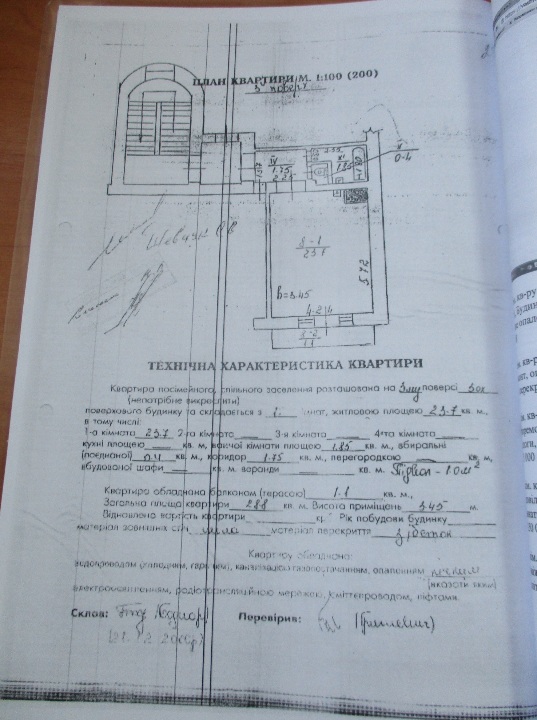 ПЛАН КВАРТИРИ М. 1:100 (200)
3 поверх
IV
1.75
2.25
VI
1.85
V
0.4
3-1
23.7
5.72
h=3.45
4.24
3-2
1.1
ТЕХНІЧНА ХАРАКТЕРИСТИКА КВАРТИРИ
Квартира посімейного, спільного заселення розташована на 3му поверсі
(непотрібне викреслити)
поверхового будинку та складається з 1 кімнат, житловою площею 23.7 кв. м.,
в тому числі:
1-а кімната 23.7 2-га кімната 3-я кімната 4-та кімната
кухні площею кв. м, ванної кімнати площею 1.85 кв. м., вбиральні
(поєднаної) 0.4 кв. м., коридор 1.75 кв. м., перегородкою кв. м,
вбудовані шафи кв. м. веранди кв. м. Підвал - 10 м²
Квартира обладнана балконом (терасою) 1.1 кв. м.,
Загальна площа квартири 28.8 кв. м. Висота приміщень 3.45 м.
Відновлена вартість квартири кр. Рік побудови будинку
матеріал зовнішніх стін цегла матеріал перекриття
Квартиру обладнано:
водопроводом (холодним, гарячим), каналізацією газопостачанням, опаленням
(вказати яким)
електроосвітленням, радіотрансляційною мережею, сміттєпроводом, ліфтами.
Склав: Перевірив: